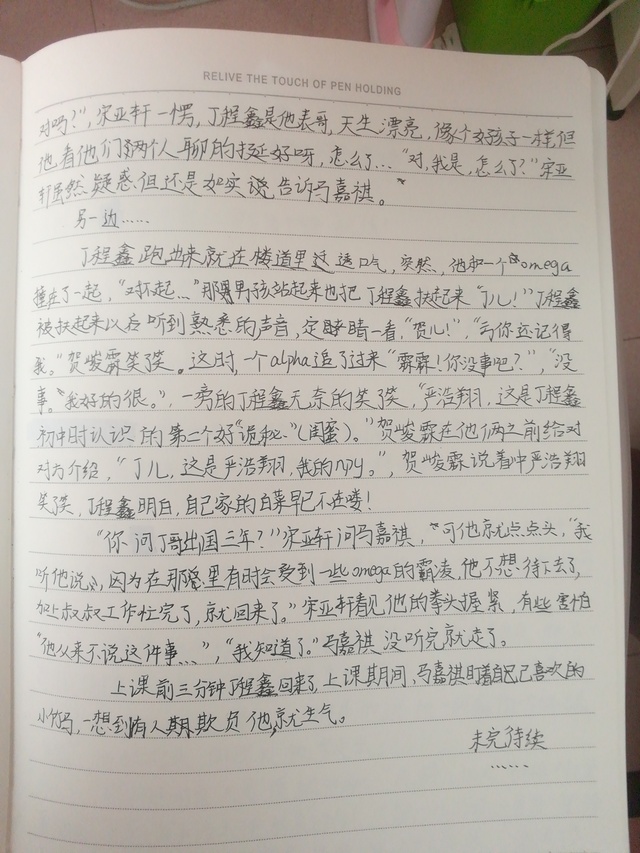 RELIVE THE TOUCH OF PEN HOLDING
对吗?",宋亚轩一愣,丁程鑫是他表哥,天生漂亮,像个女孩子一样,但
他看他们俩两个人聊的挺好呀,怎么了..."对,我是,怎么了?"宋亚
轩虽然疑惑但还是如实说告诉马嘉祺。
另一边……
丁程鑫跑出来就在楼道里透透口气,突然,他和一个omega
撞在了一起,"对不起..."那男孩站起来也把丁程鑫扶起来"丁儿!"丁程鑫
被扶起来以后听到熟悉的声音,定睛一看,"贺儿!","亏你还记得
我。"贺峻霖笑了笑。这时,一个alpha追了过来"霖霖!你没事吧?","没
事。"我好的很。",一旁的丁程鑫无奈的笑了笑,"严浩翔,这是丁程鑫
初中时认识的第二个好"诡秘"(闺蜜)。"贺峻霖在他俩之前给对
对方介绍,"丁儿,这是严浩翔,我的npy。",贺峻霖说着冲严浩翔
笑了笑,丁程鑫明白,自己家的白菜早已不在喽!
"你问丁哥出国三年?"宋亚轩问马嘉祺,"可他就点点头,"我
听他说,因为在那里有时会受到一些omega的霸凌,他不想待下去了,
加上叔叔工作忙完了,就回来了。"宋亚轩看见他的拳头握紧,有些害怕
"他从来不说这件事...","我知道了。"马嘉祺没听完就走了。
上课前三分钟丁程鑫回来了,上课期间,马嘉祺盯着自己喜欢的
小竹马,一想到有人期欺负他,就生气。
未完待续
……